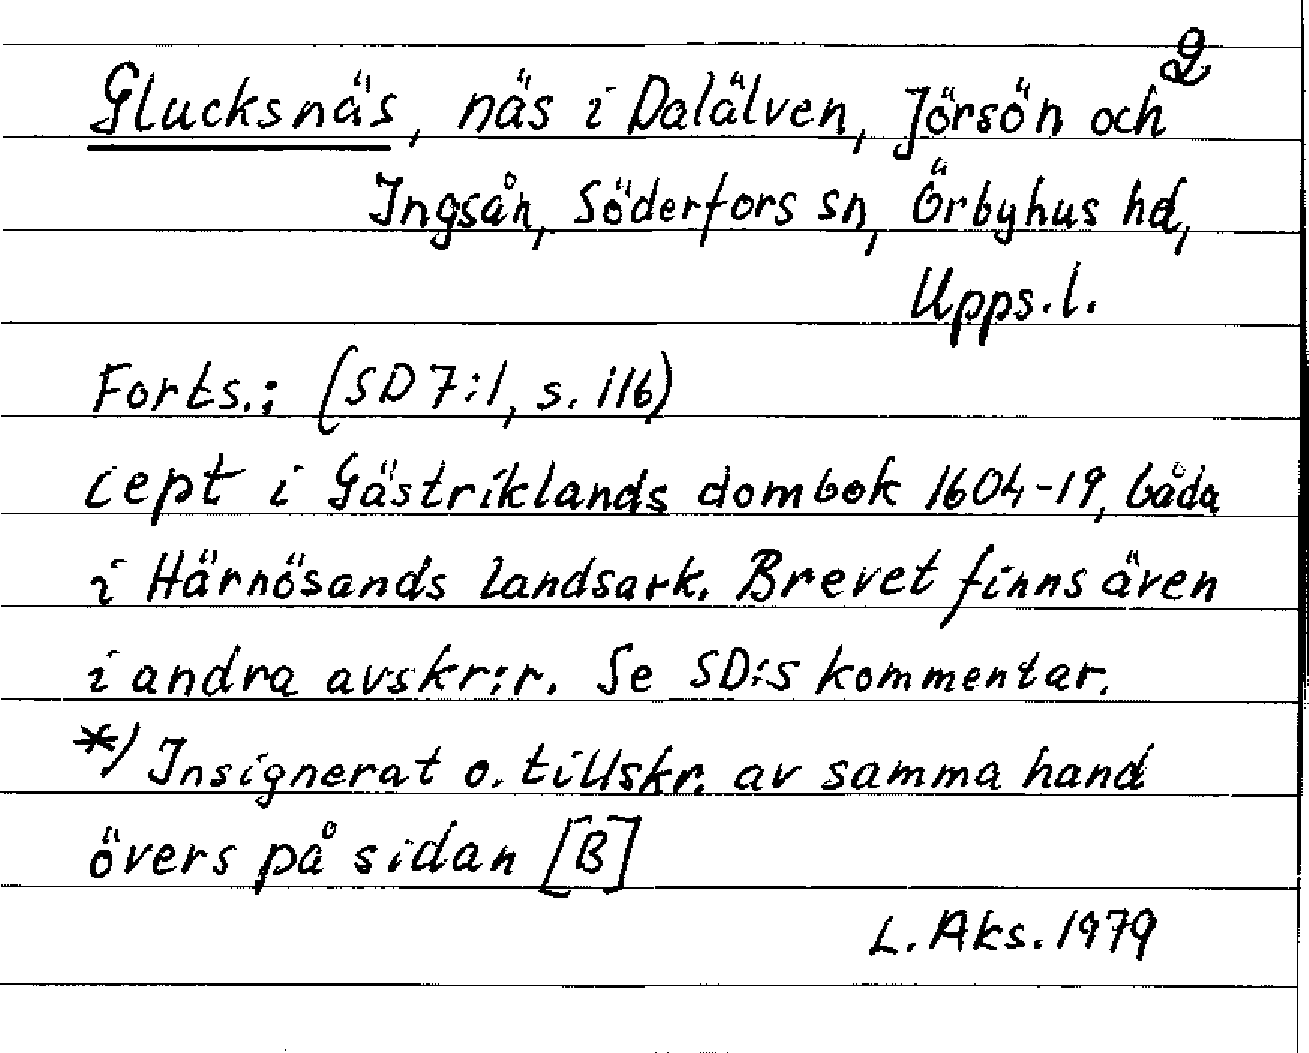 2
Glucksnäs, näs i Dalälven, Jörsön och
Ingsån, Söderfors sn, Örbyhus hd,
Upps.l.
Forts.: (SD 7:1, s. 116)
cept i Gästriklands dombok 1604-19, båda
i Härnösands landsark. Brevet finns även
i andra avskr:r. Se SD:s kommentar.
*) Insignerat o. tillskr. av samma hand
övers på sidan [B]
L. Aks. 1979